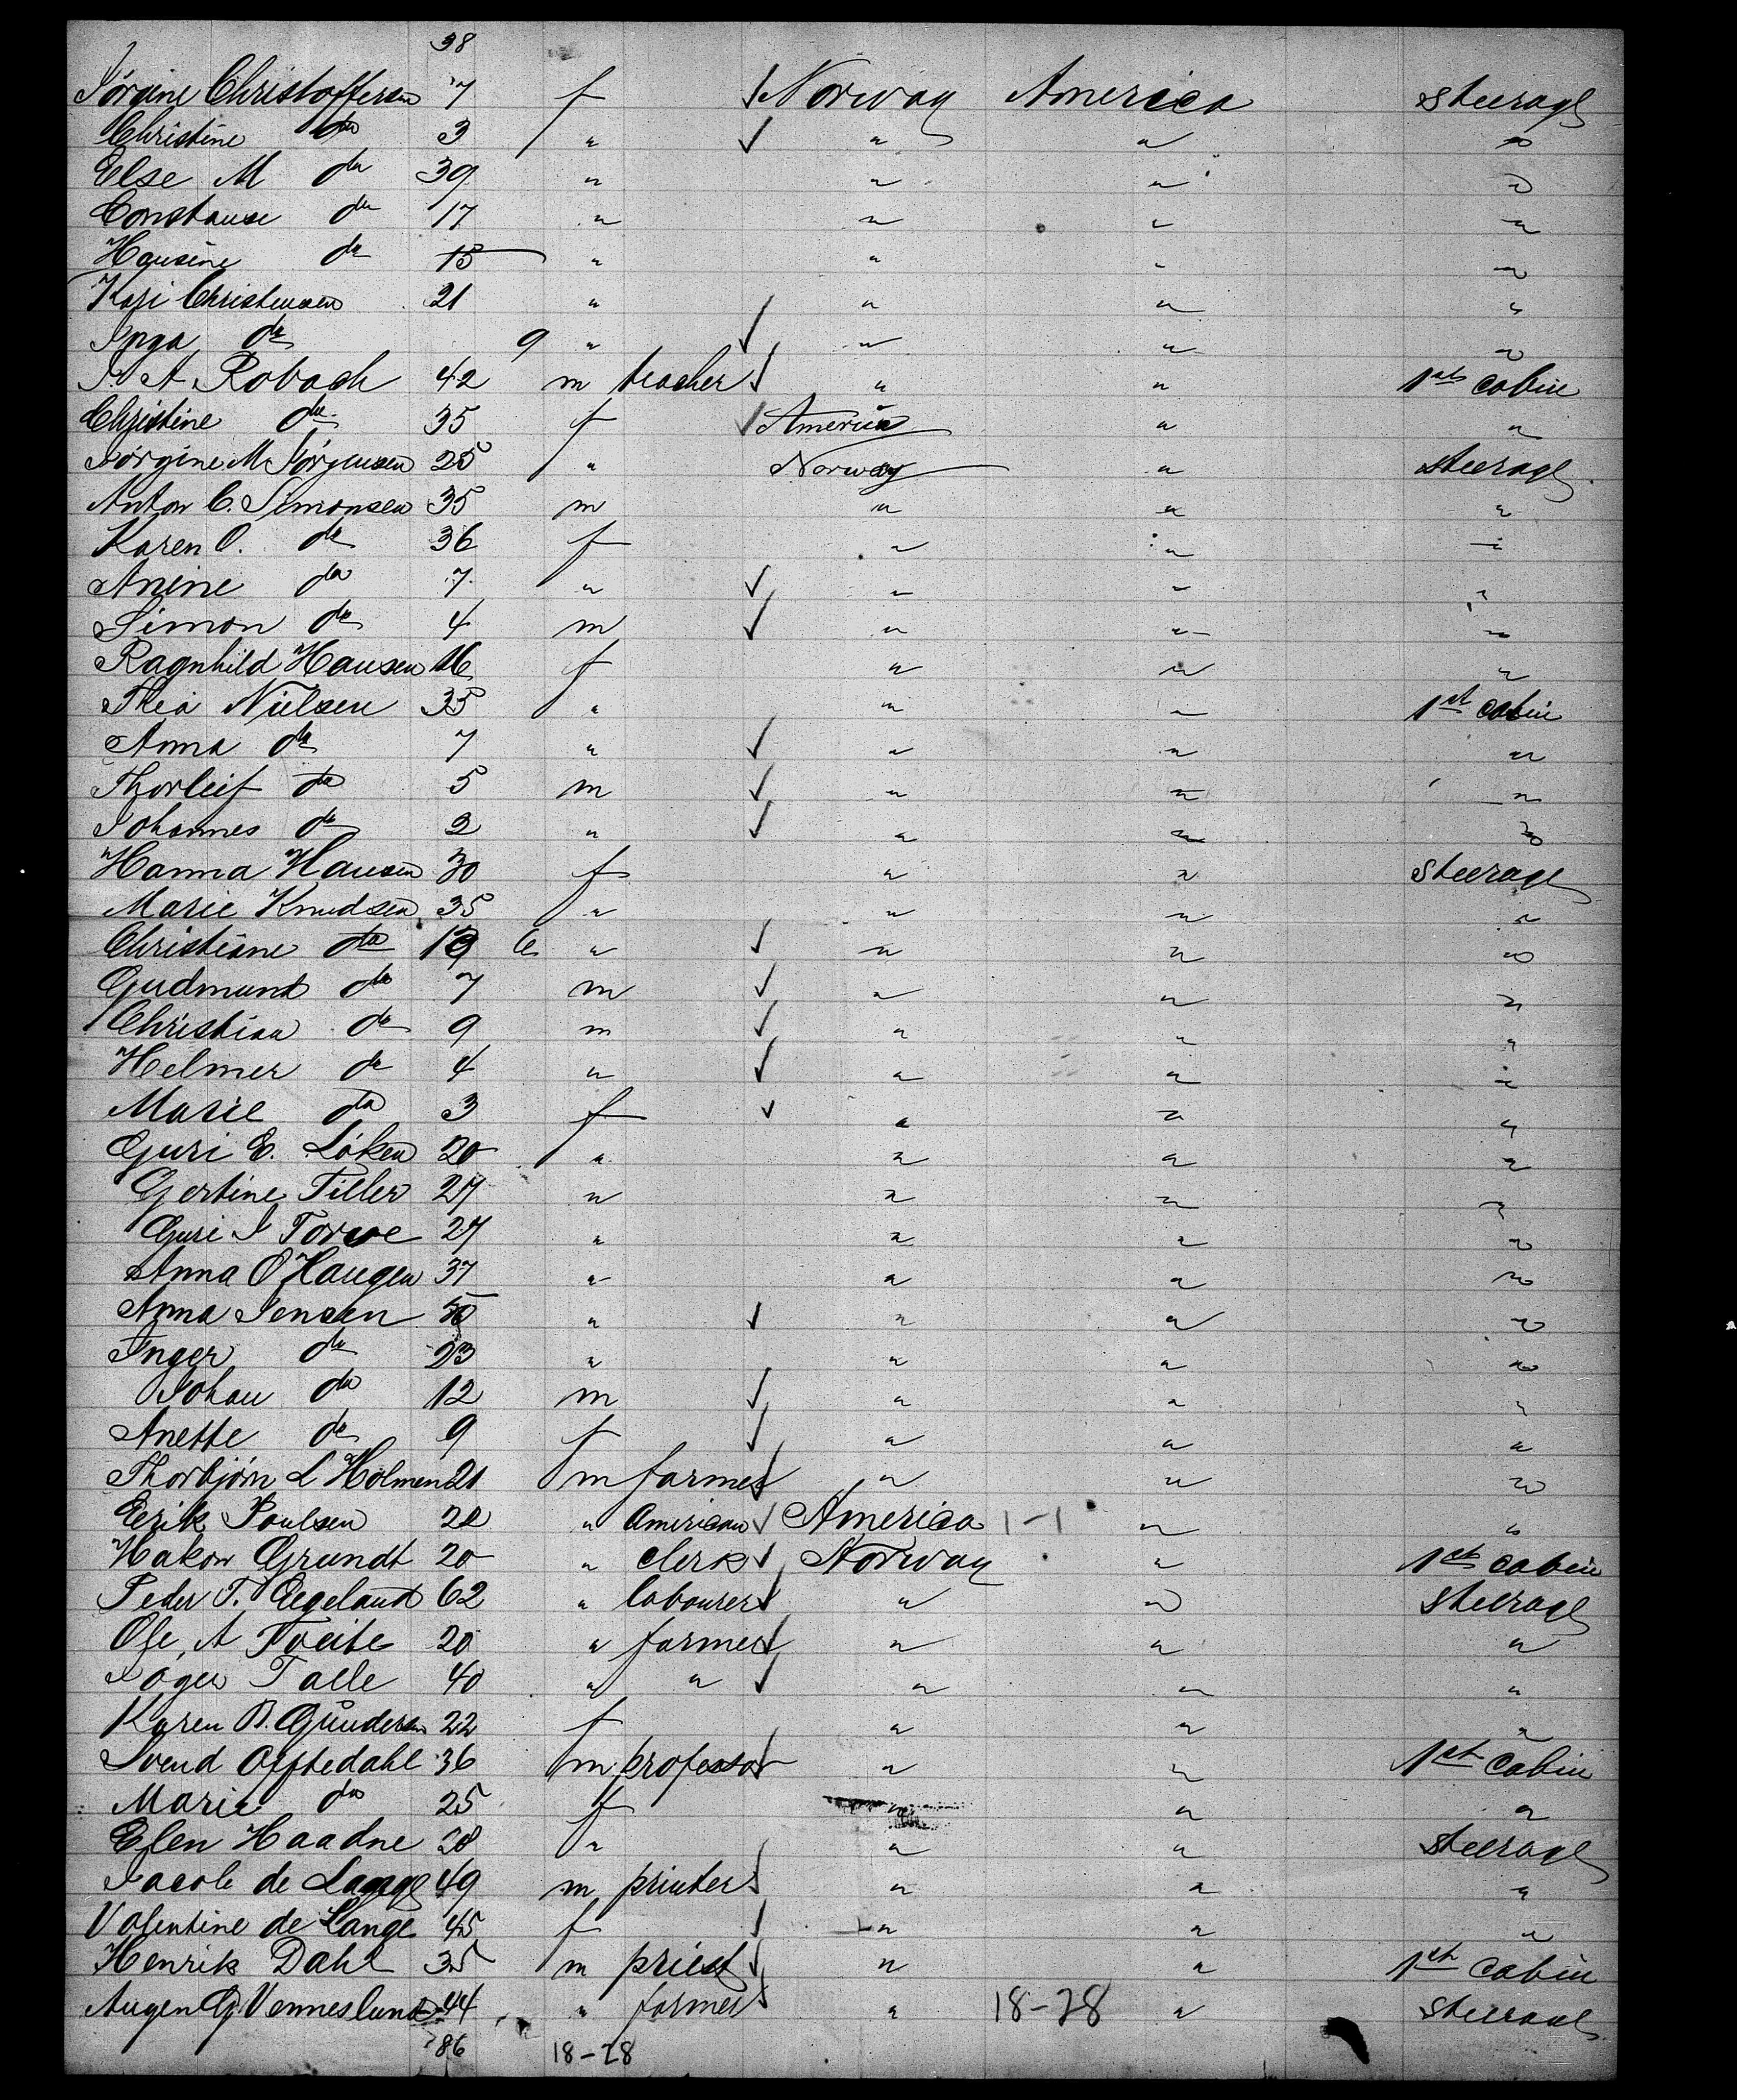 38
Jörgine Christoffersen 7 f ✓ Norway America steerage
Christine do 3 " ✓ " " "
Else M do 39 " " " "
Constanse do 17 " " " "
Hansine do 15 " " " "
Kari Christensen 21 " " " "
Inga do 9 " ✓ " " "
J. A. Robach 42 m teacher ✓ " " 1st cabin
Christine do 35 f ✓ America " "
Jörgine M Jörgensen 25 " Norway " steerage
Anton C. Simonsen 35 m " " "
Karen O. do 36 f " " "
Anine do 7 " ✓ " " "
Simon do 4 m ✓ " " "
Ragnhild Hansen 16 f " " "
Thea Nielsen 35 " " " 1st cabin
Anna do 7 " ✓ " " "
Thorleif do 5 m ✓ " " "
Johannes do 2 " ✓ " " "
Hanna Hansen 30 f " " steerage
Marie Knudsen 35 " " " "
Christiane do 6 " ✓ " " "
Gudmund do 7 m ✓ " " "
Christian do 9 m ✓ " " "
Helmer do 4 " ✓ " " "
Marie do 3 f ✓ " " "
Guri E. Löken 20 " " " "
Gertine Tiller 27 " " " "
Guri I Torve 27 " " " "
Anna O Haugen 37 " " " "
Anna Jensen 50 " ✓ " " "
Inger do 23 " " " "
Johan do 12 m ✓ " " "
Anette do 9 f ✓ " " "
Thorbjörn L Holmen 21 m farmer ✓ " " "
Erik Poulsen 22 " American ✓ America 1-1 " "
Hakon Grundt 20 " clerk ✓ Norway " 1st cabin
Peder T. Eegeland 62 " labourer ✓ " " steerage
Ole A Tveite 20 " farmer ✓ " " "
Talle 40 " " ✓ " " "
Karen B. Gundersen 22 f " " "
Svend Oftedahl 36 m professor ✓ " " 1st cabin
Marie do 25 f " " "
Elen Haadne 28 " " " steerage
Jacob de Lange 49 m printer ✓ " " "
Valentine de Lange 45 f ✓ " " "
Henrik Dahl 35 m priest ✓ " " 1st cabin
G. Venneslund 44 " farmer ✓ " 18-28 " steerage
86 18-28